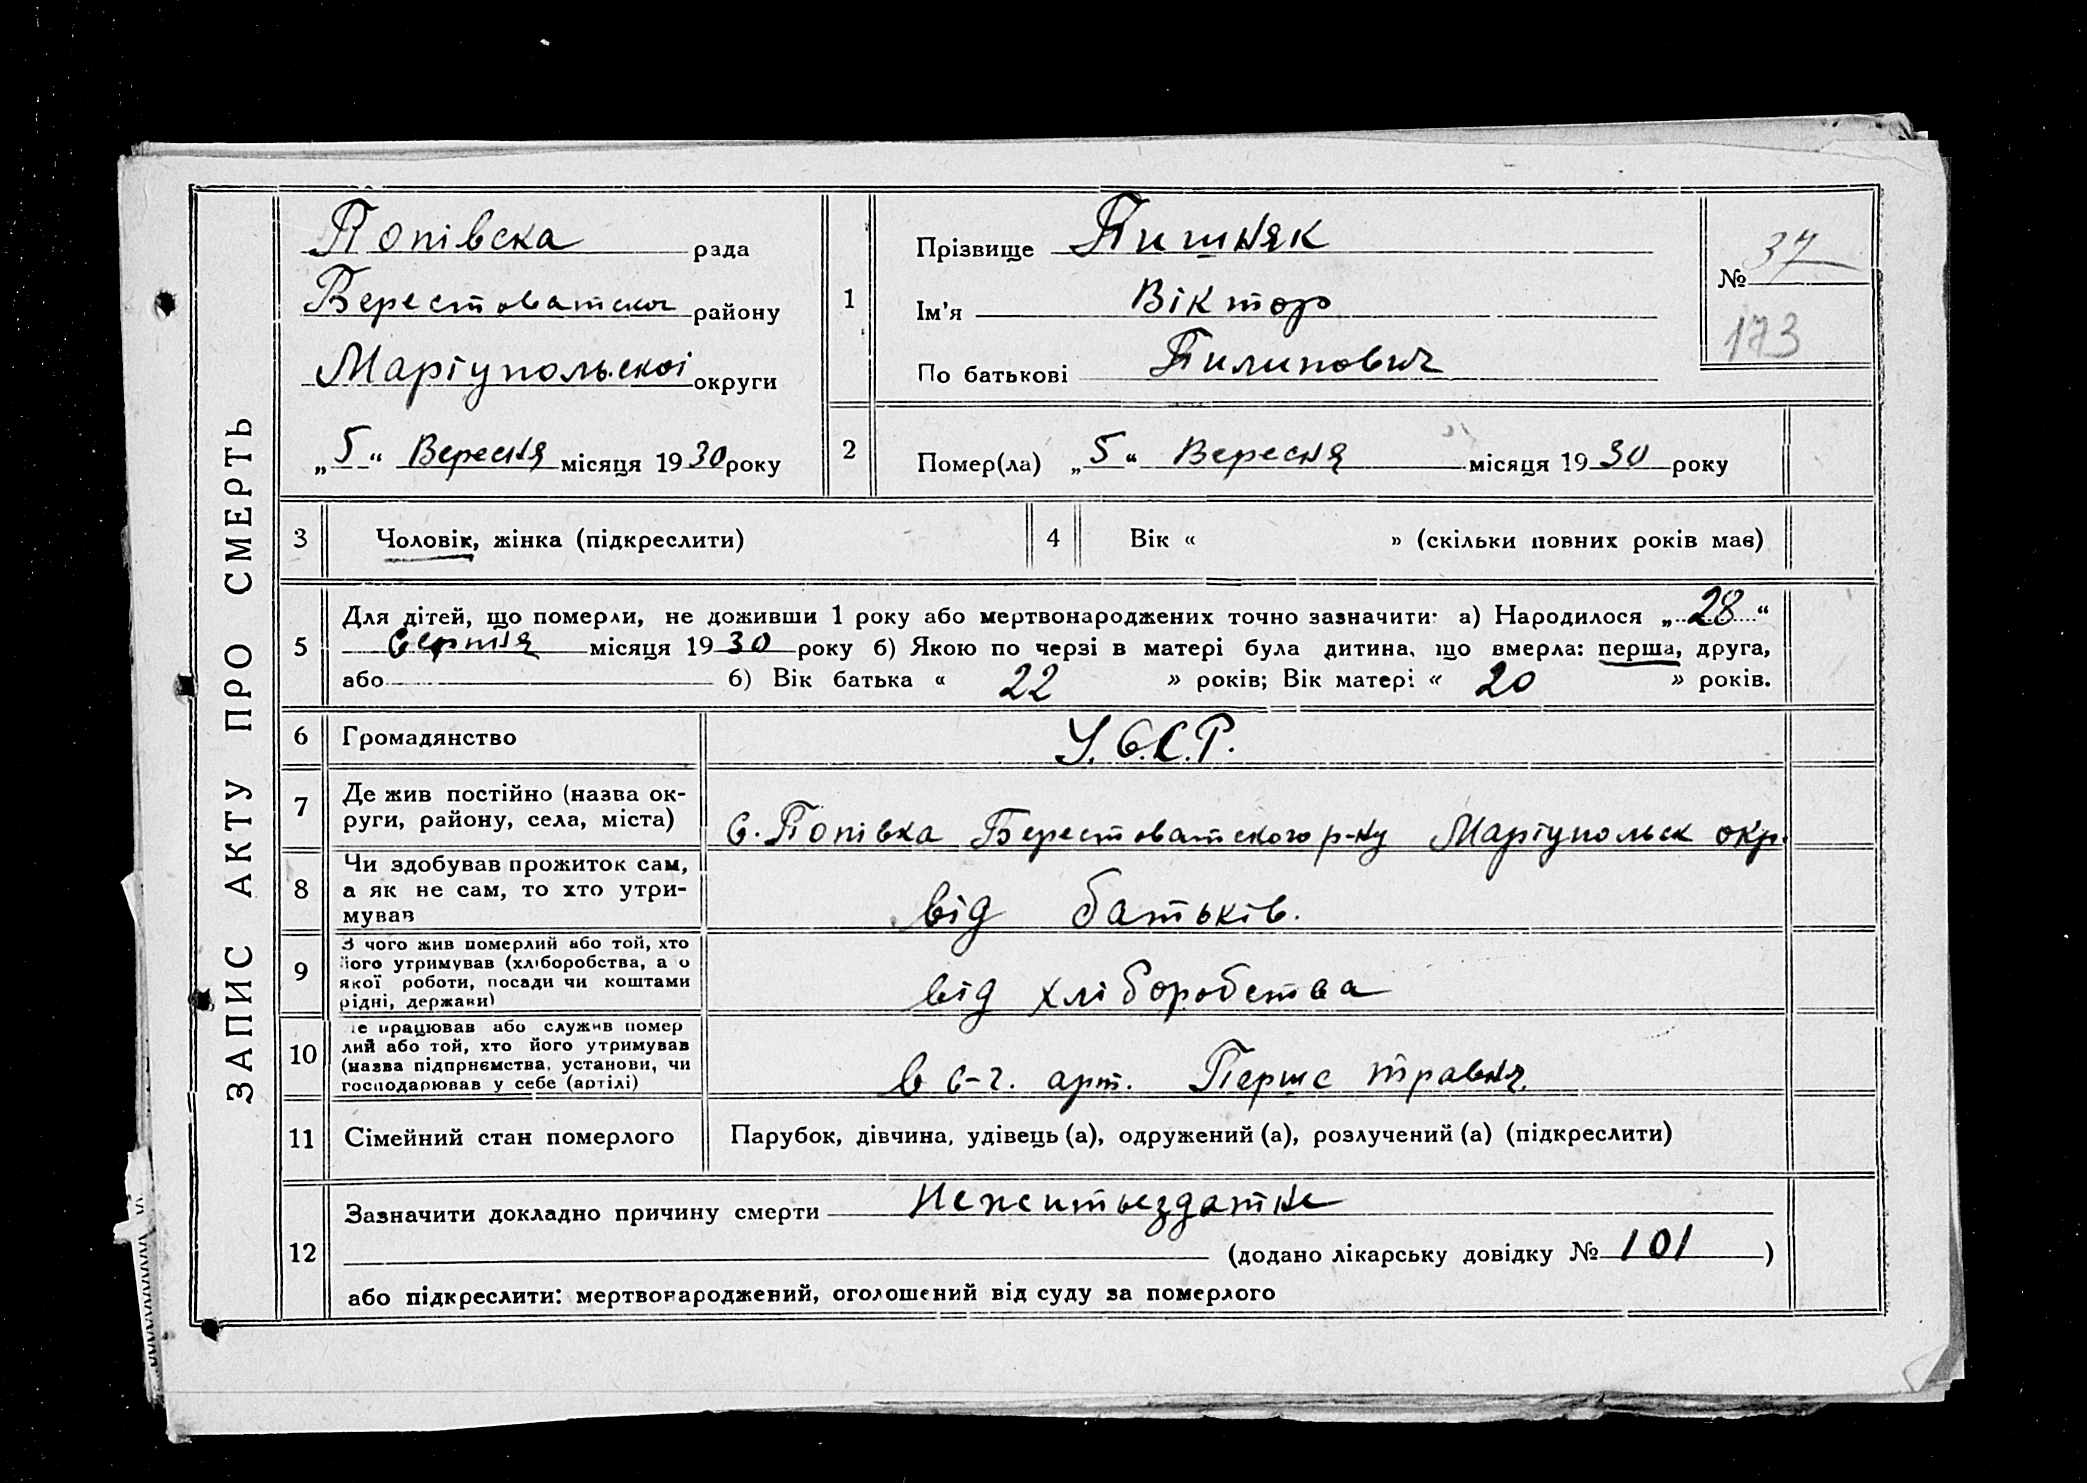 ЗАПИС АКТУ ПРО СМЕРТЬ
Попівска рада
Берестоватскої району
Маріупольскої округи
„5“ Вересня місяця 1930 року
1
Прізвище Пишняк
Ім'я Віктор
По батькові Пилипович
№ 37
173
2
Помер(ла) „5“ Вересня місяця 1930 року
3
Чоловік, жінка (підкреслити)
4
Вік « » (скільки повних років мав)
5
Для дітей, що померли, не доживши 1 року або мертвонароджених точно зазначити: а) Народилося „28“
Серпня місяця 1930 року б) Якою по черзі в матері була дитина, що вмерла: перша, друга,
або б) Вік батька « 22 » років; Вік матері « 20 » років.
6
Громадянство
У.С.С.Р.
7
Де жив постійно (назва ок-
руги, району, села, міста)
с. Попівка Берестоватского р-ну Маріупольск окр.
8
Чи здобував прожиток сам,
а як не сам, то хто утри-
мував
від батьків.
9
З чого жив померлий або той, хто
його утримував (хліборобства, а о
якої роботи, посади чи коштами
рідні, держави)
від хліборобства
10
де працював або служив помер
лий або той, хто його утримував
(назва підприємства, установи, чи
господарював у себе (артілі)
в с-г. арт. Перше травня.
11
Сімейний стан померлого
Парубок, дівчина, удівець (а), одружений (а), розлучений (а) (підкреслити)
12
Зазначити докладно причину смерти Нежитьездатне
(додано лікарську довідку № 101)
або підкреслити: мертвонароджений, оголошений від суду за померлого